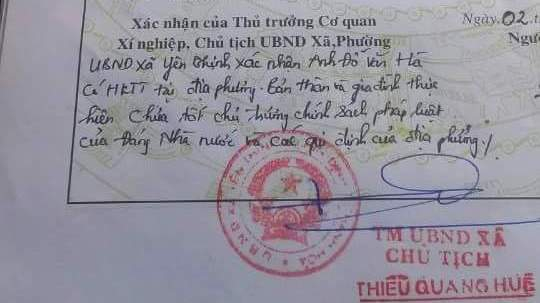 Xác nhận của Thủ trưởng Cơ quan
Xí nghiệp, Chủ tịch UBND Xã,Phường
Ngày.02.t
Ngư
UBND xã Yên Thịnh xác nhận Anh Đỗ Văn Hà
Có HKTT tại địa phương. bản thân và gia đình thực
hiện Chưa tốt chủ trương chính sách pháp luật
của Đảng Nhà nước và các qui định của địa phương./
TM UBND XÃ
CHỦ TỊCH
THIỀU QUANG HUỆ